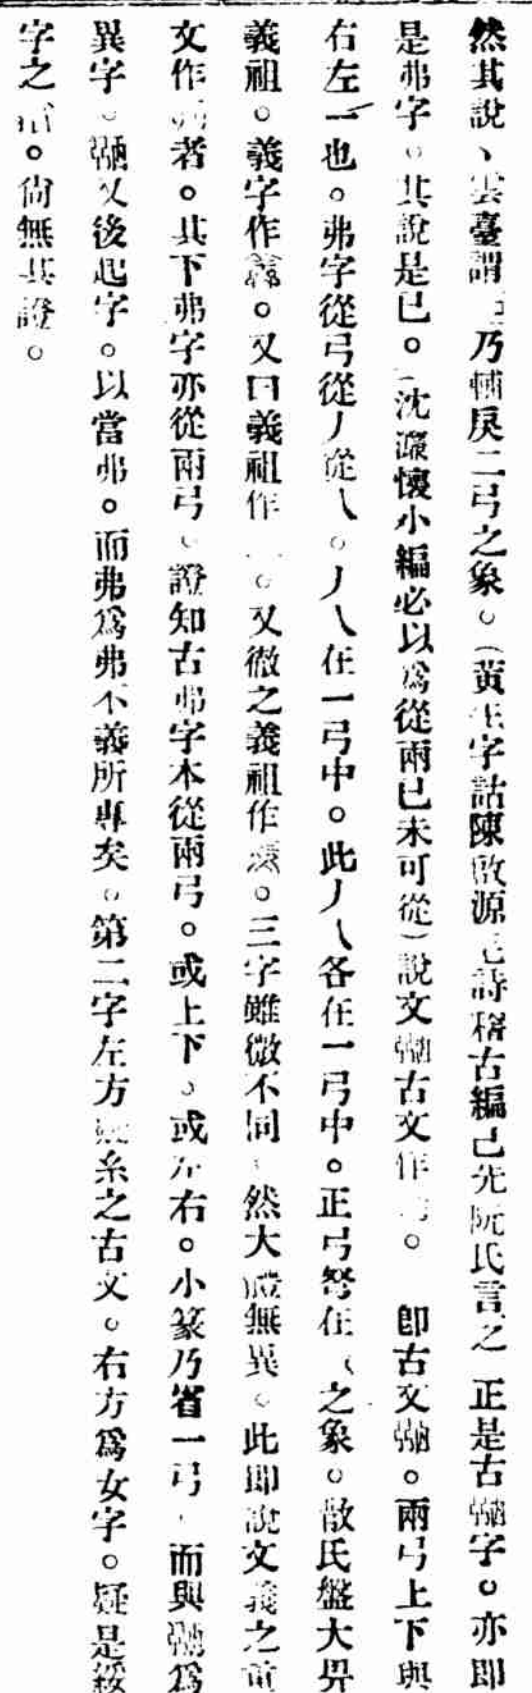 然其說、雲臺謂乃輔戾二弓之象。（黃生字詁陳啟源毛詩稽古編已先阮氏言之 正是古弼字。亦即
是弗字。其說是已。（沈濂懷小編必以為從兩已未可從）說文弼古文作。 卽古文弼。兩弓上下與
右左一也。弗字從弓從丿從乀。丿乀在一弓中。此丿乀各在一弓中。正弓弩在之象。散氏盤大𢌿
義祖。義字作。又曰義祖作。又微之義祖作。三字雖微不同 然大體無異。此即說文義之重
文作者。其下弗字亦從兩弓。證知古弗字本從兩弓。或上下。或左右。小篆乃省一弓，而與弼為
異字。弼又後起字。以當弗。而弗為弗不義所專矣。第二字左方糸之古文。右方為女字。疑是綏
字之省。尙無其證。